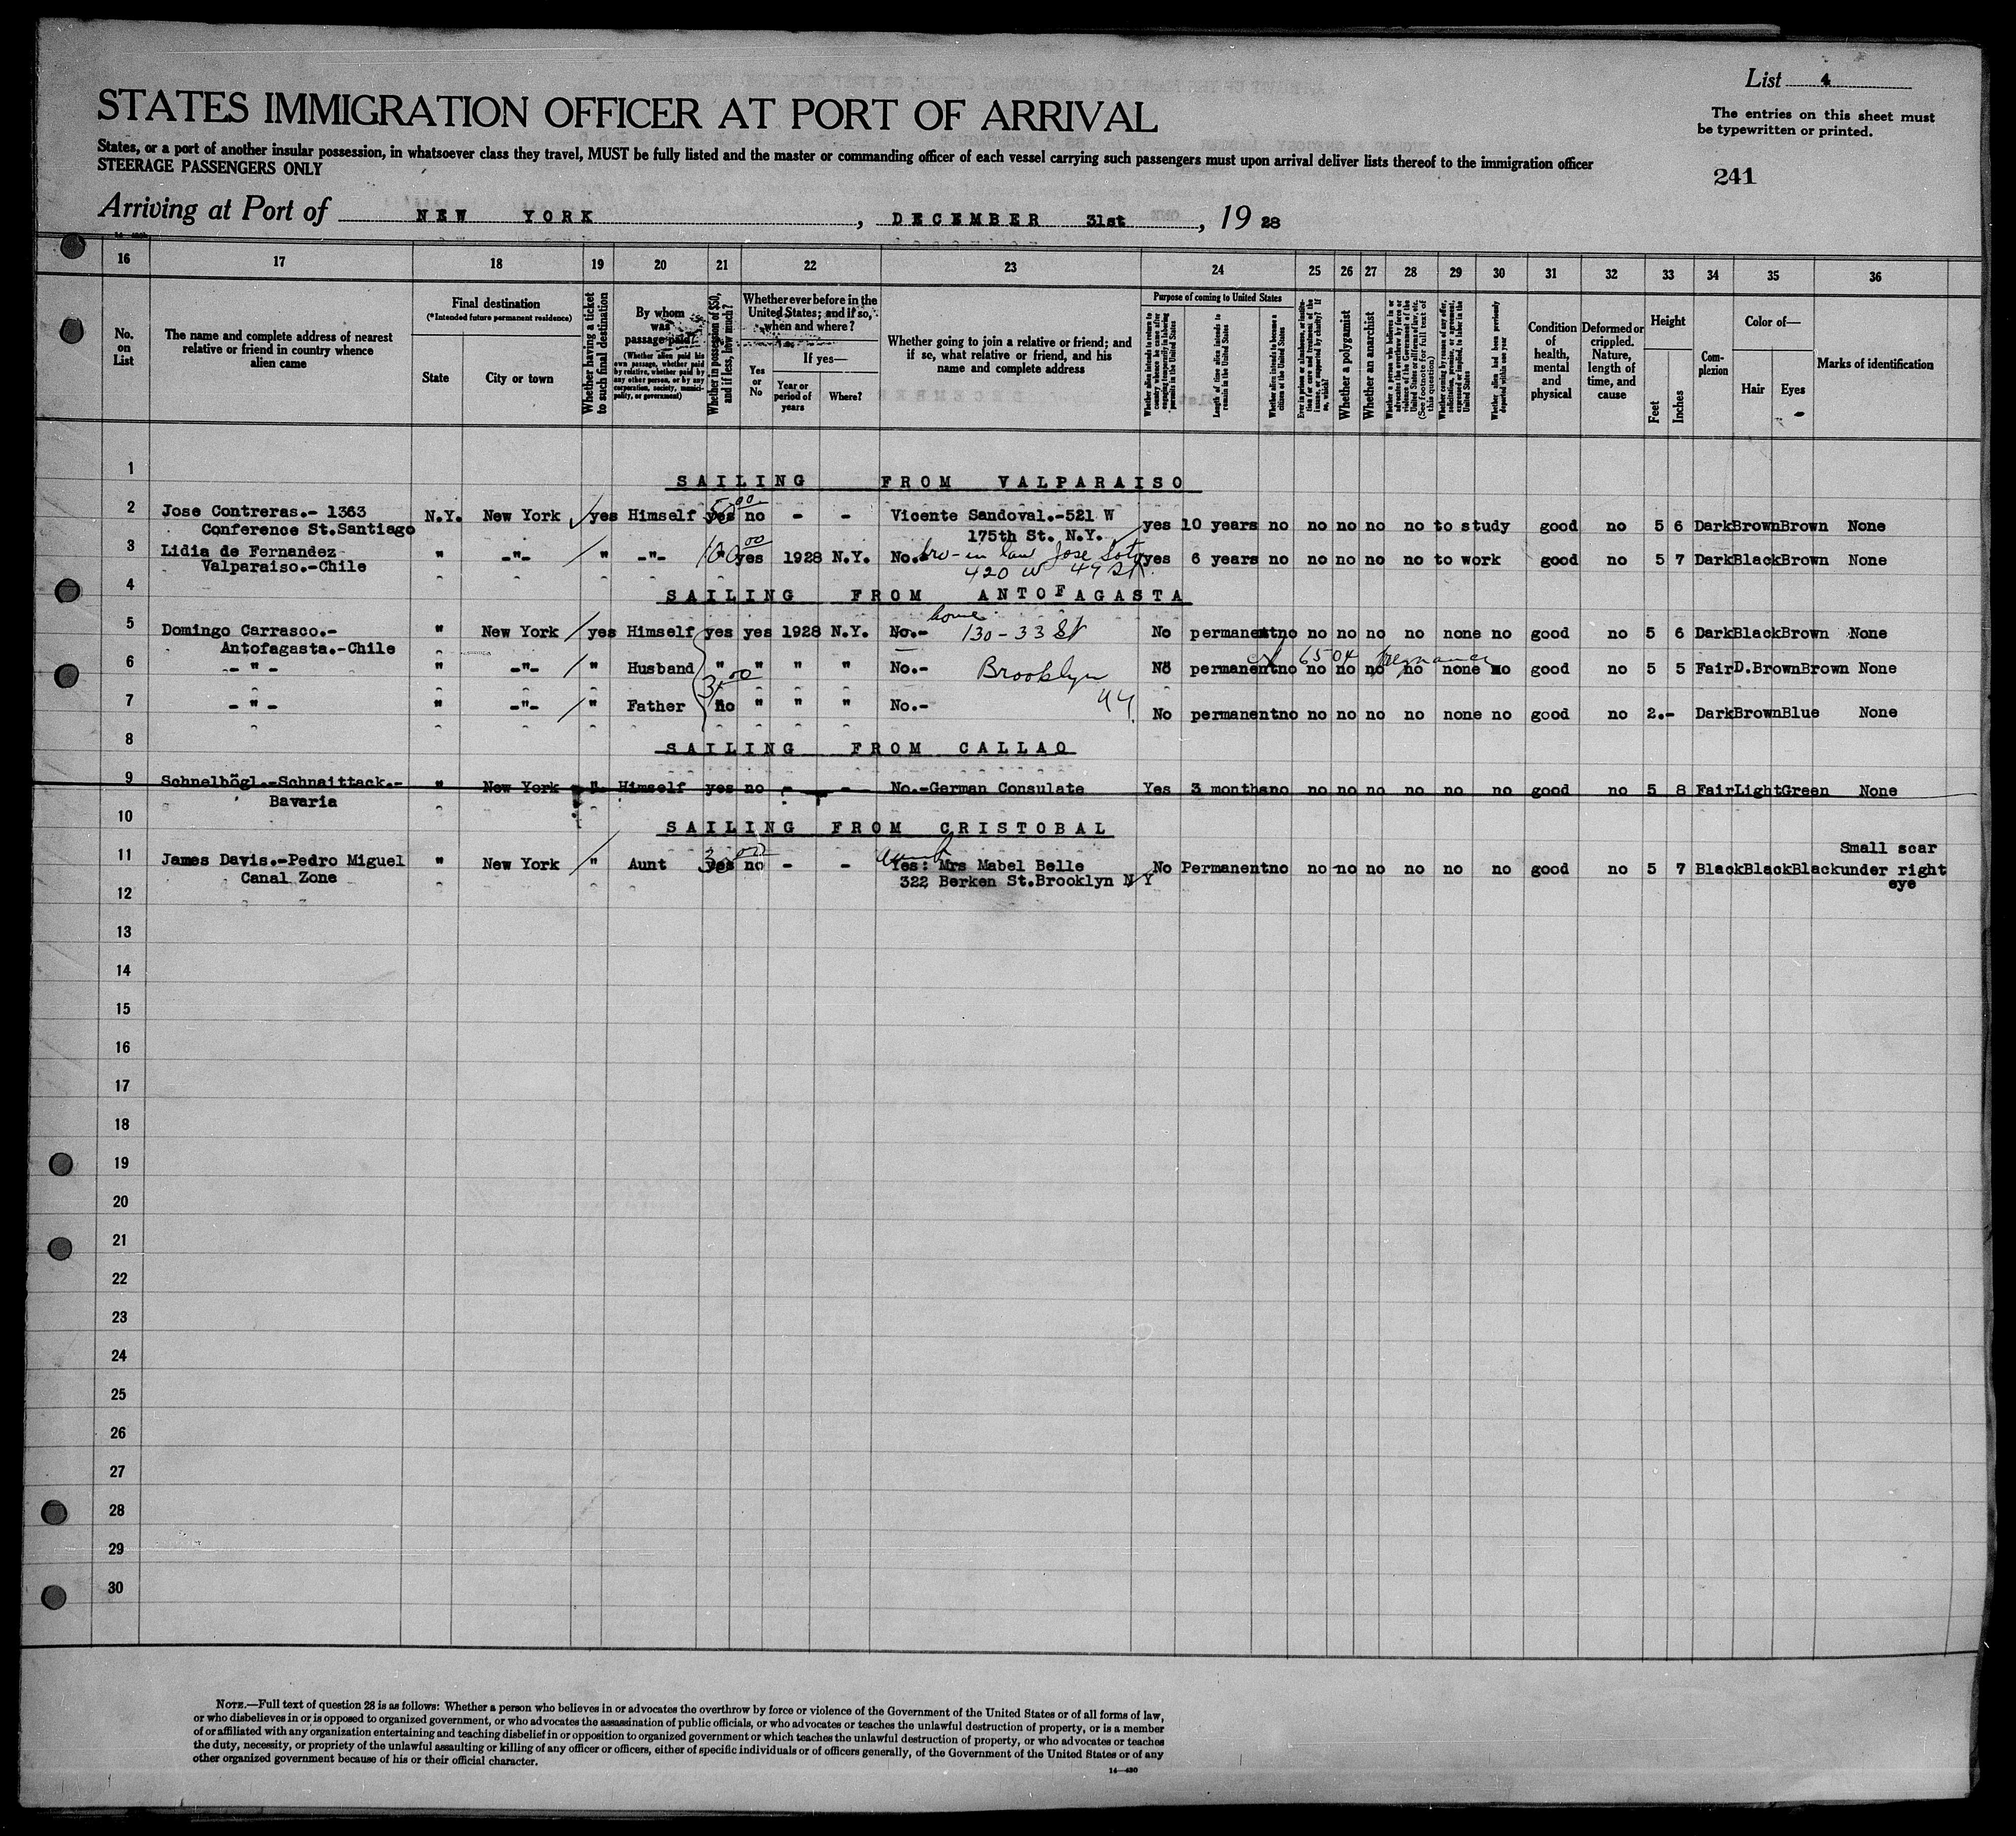 List 4
STATES IMMIGRATION OFFICER AT PORT OF ARRIVAL
The entries on this sheet must
be typewritten or printed.
States, or a port of another insular possession, in whatsoever class they travel, MUST be fully listed and the master or commanding officer of each vessel carrying such passengers must upon arrival deliver lists thereof to the immigration officer
STEERAGE PASSENGERS ONLY
241
Arriving at Port of NEW YORK, DECEMBER 31st, 19 28
16 17 18 19 20 21 22 23 24 25 26 27 28 29 30 31 32 33 34 35 36
No. on List
The name and complete address of nearest relative or friend in country whence alien came
Final destination
(*Intended future permanent residence)
State
City or town
Whether having a ticket to such final destination
By whom was passage paid?
(Whether alien paid his own passage, whether paid by relative, whether paid by any other person, or by any corporation, society, municipality, or government)
Whether in possession of $50, and if less, how much?
Whether ever before in the United States; and if so, when and where?
Yes or No
If yes—
Year or period of years
Where?
Whether going to join a relative or friend; and if so, what relative or friend, and his name and complete address
Purpose of coming to United States
Whether alien intends to return to country whence he came after engaging temporarily in laboring pursuits in the United States
Length of time alien intends to remain in the United States
Whether alien intends to become a citizen of the United States
Ever in prison or almshouse, or institution for care and treatment of the insane, or supported by charity? If so, which?
Whether a polygamist
Whether an anarchist
Whether a person who believes in or advocates the overthrow by force or violence of the Government of the United States or all forms of law, etc. (See footnote for full text of this question)
Whether coming by reason of any offer, solicitation, promise, or agreement, expressed or implied, to labor in the United States
Whether alien had been previously deported within one year
Condition of health, mental and physical
Deformed or crippled. Nature, length of time, and cause
Height
Feet
Inches
Complexion
Color of—
Hair
Eyes
Marks of identification
1
SAILING FROM VALPARAISO
2 Jose Contreras.- 1363 N.Y. New York yes Himself yes 50 00 no - - Vicente Sandoval.-521 W yes 10 years no no no no no to study good no 5 6 Dark Brown Brown None
Conference St.Santiago 175th St. N.Y.
3 Lidia de Fernandez " -"- " -"- 100 00 yes 1928 N.Y. No.- bro-in law Jose Soto yes 6 years no no no no no to work good no 5 7 Dark Black Brown None
Valparaiso.-Chile 420 W 49 St.
4
SAILING FROM ANTOFAGASTA
5 Domingo Carrasco.- " New York yes Himself yes yes 1928 N.Y. No.- home 130-33 St No permanent no no no no no none no good no 5 6 Dark Black Brown None
Antofagasta.-Chile
6 -"- " -"- " Husband " " " " No.- Brooklyn No permanent no no no no no none no good no 5 5 Fair D.Brown Brown None
6504 pregnancy
7 -"- " -"- " Father no " " " No.- No permanent no no no no no none no good no 2.- Dark Brown Blue None
8
SAILING FROM CALLAO
9 Schnelbögl.-Schnaittack.- " New York " Himself yes no - - No.-German Consulate Yes 3 months no no no no no no no good no 5 8 Fair Light Green None
Bavaria
10
SAILING FROM CRISTOBAL
11 James Davis.-Pedro Miguel " New York " Aunt yes 30 00 no - - aunt Yes: Mrs Mabel Belle No Permanent no no no no no no no good no 5 7 Black Black Black Small scar under right eye
Canal Zone 322 Berken St.Brooklyn N Y
12
13
14
15
16
17
18
19
20
21
22
23
24
25
26
27
28
29
30
NOTE.—Full text of question 28 is as follows: Whether a person who believes in or advocates the overthrow by force or violence of the Government of the United States or of all forms of law,
or who disbelieves in or is opposed to organized government, or who advocates the assassination of public officials, or who advocates or teaches the unlawful destruction of property, or is a member
of or affiliated with any organization entertaining and teaching disbelief in or opposition to organized government or which teaches the unlawful destruction of property, or who advocates or teaches
the duty, necessity, or propriety of the unlawful assaulting or killing of any officer or officers, either of specific individuals or of officers generally, of the Government of the United States or of any
other organized government because of his or their official character.
14—430